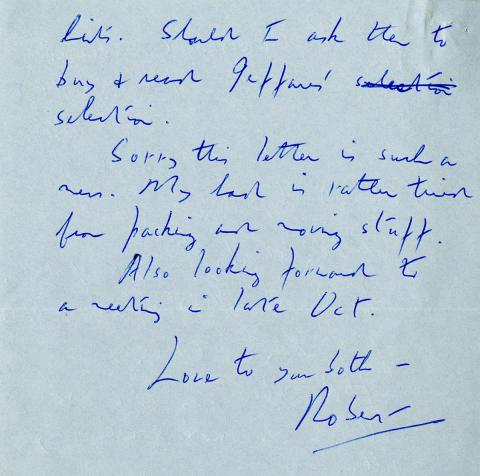 lists. Should I ask them to
buy & read Jeffares'
selection.
Sorry this letter is such a
mess. My hand is rather tired
from packing and moving stuff.
Also looking forward to
a meeting in late Oct.
Love to you both –
Robert